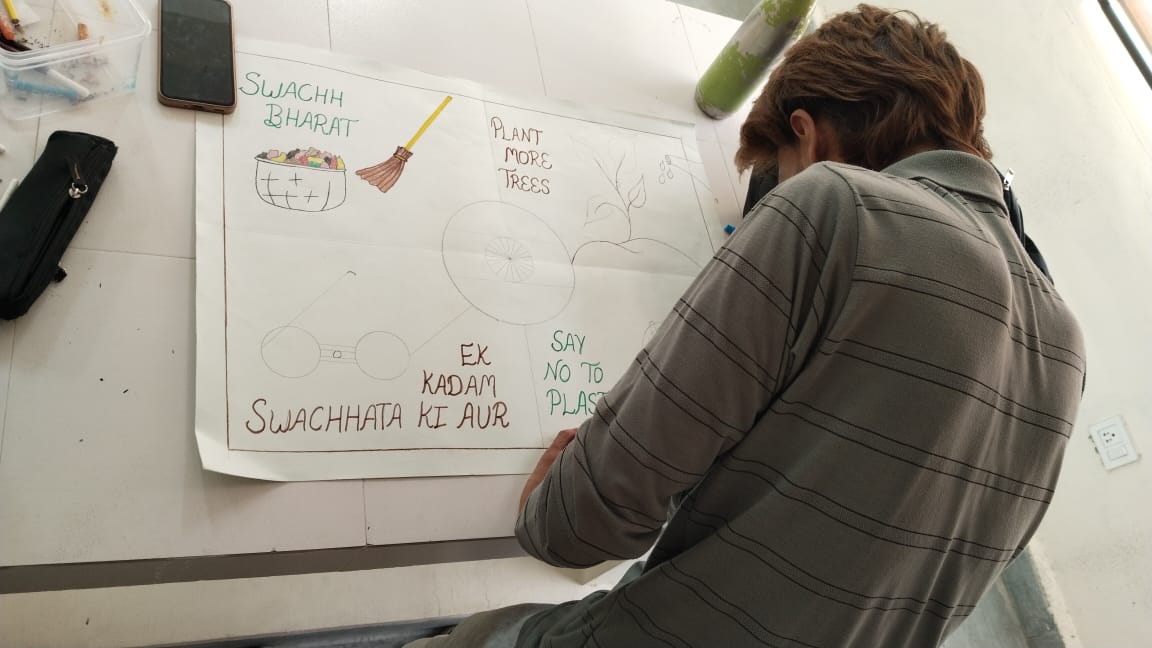 SWACHH
BHARAT
PLANT
MORE
TREES
EK
KADAM
SWACHHATA KI AUR
SAY
NO TO